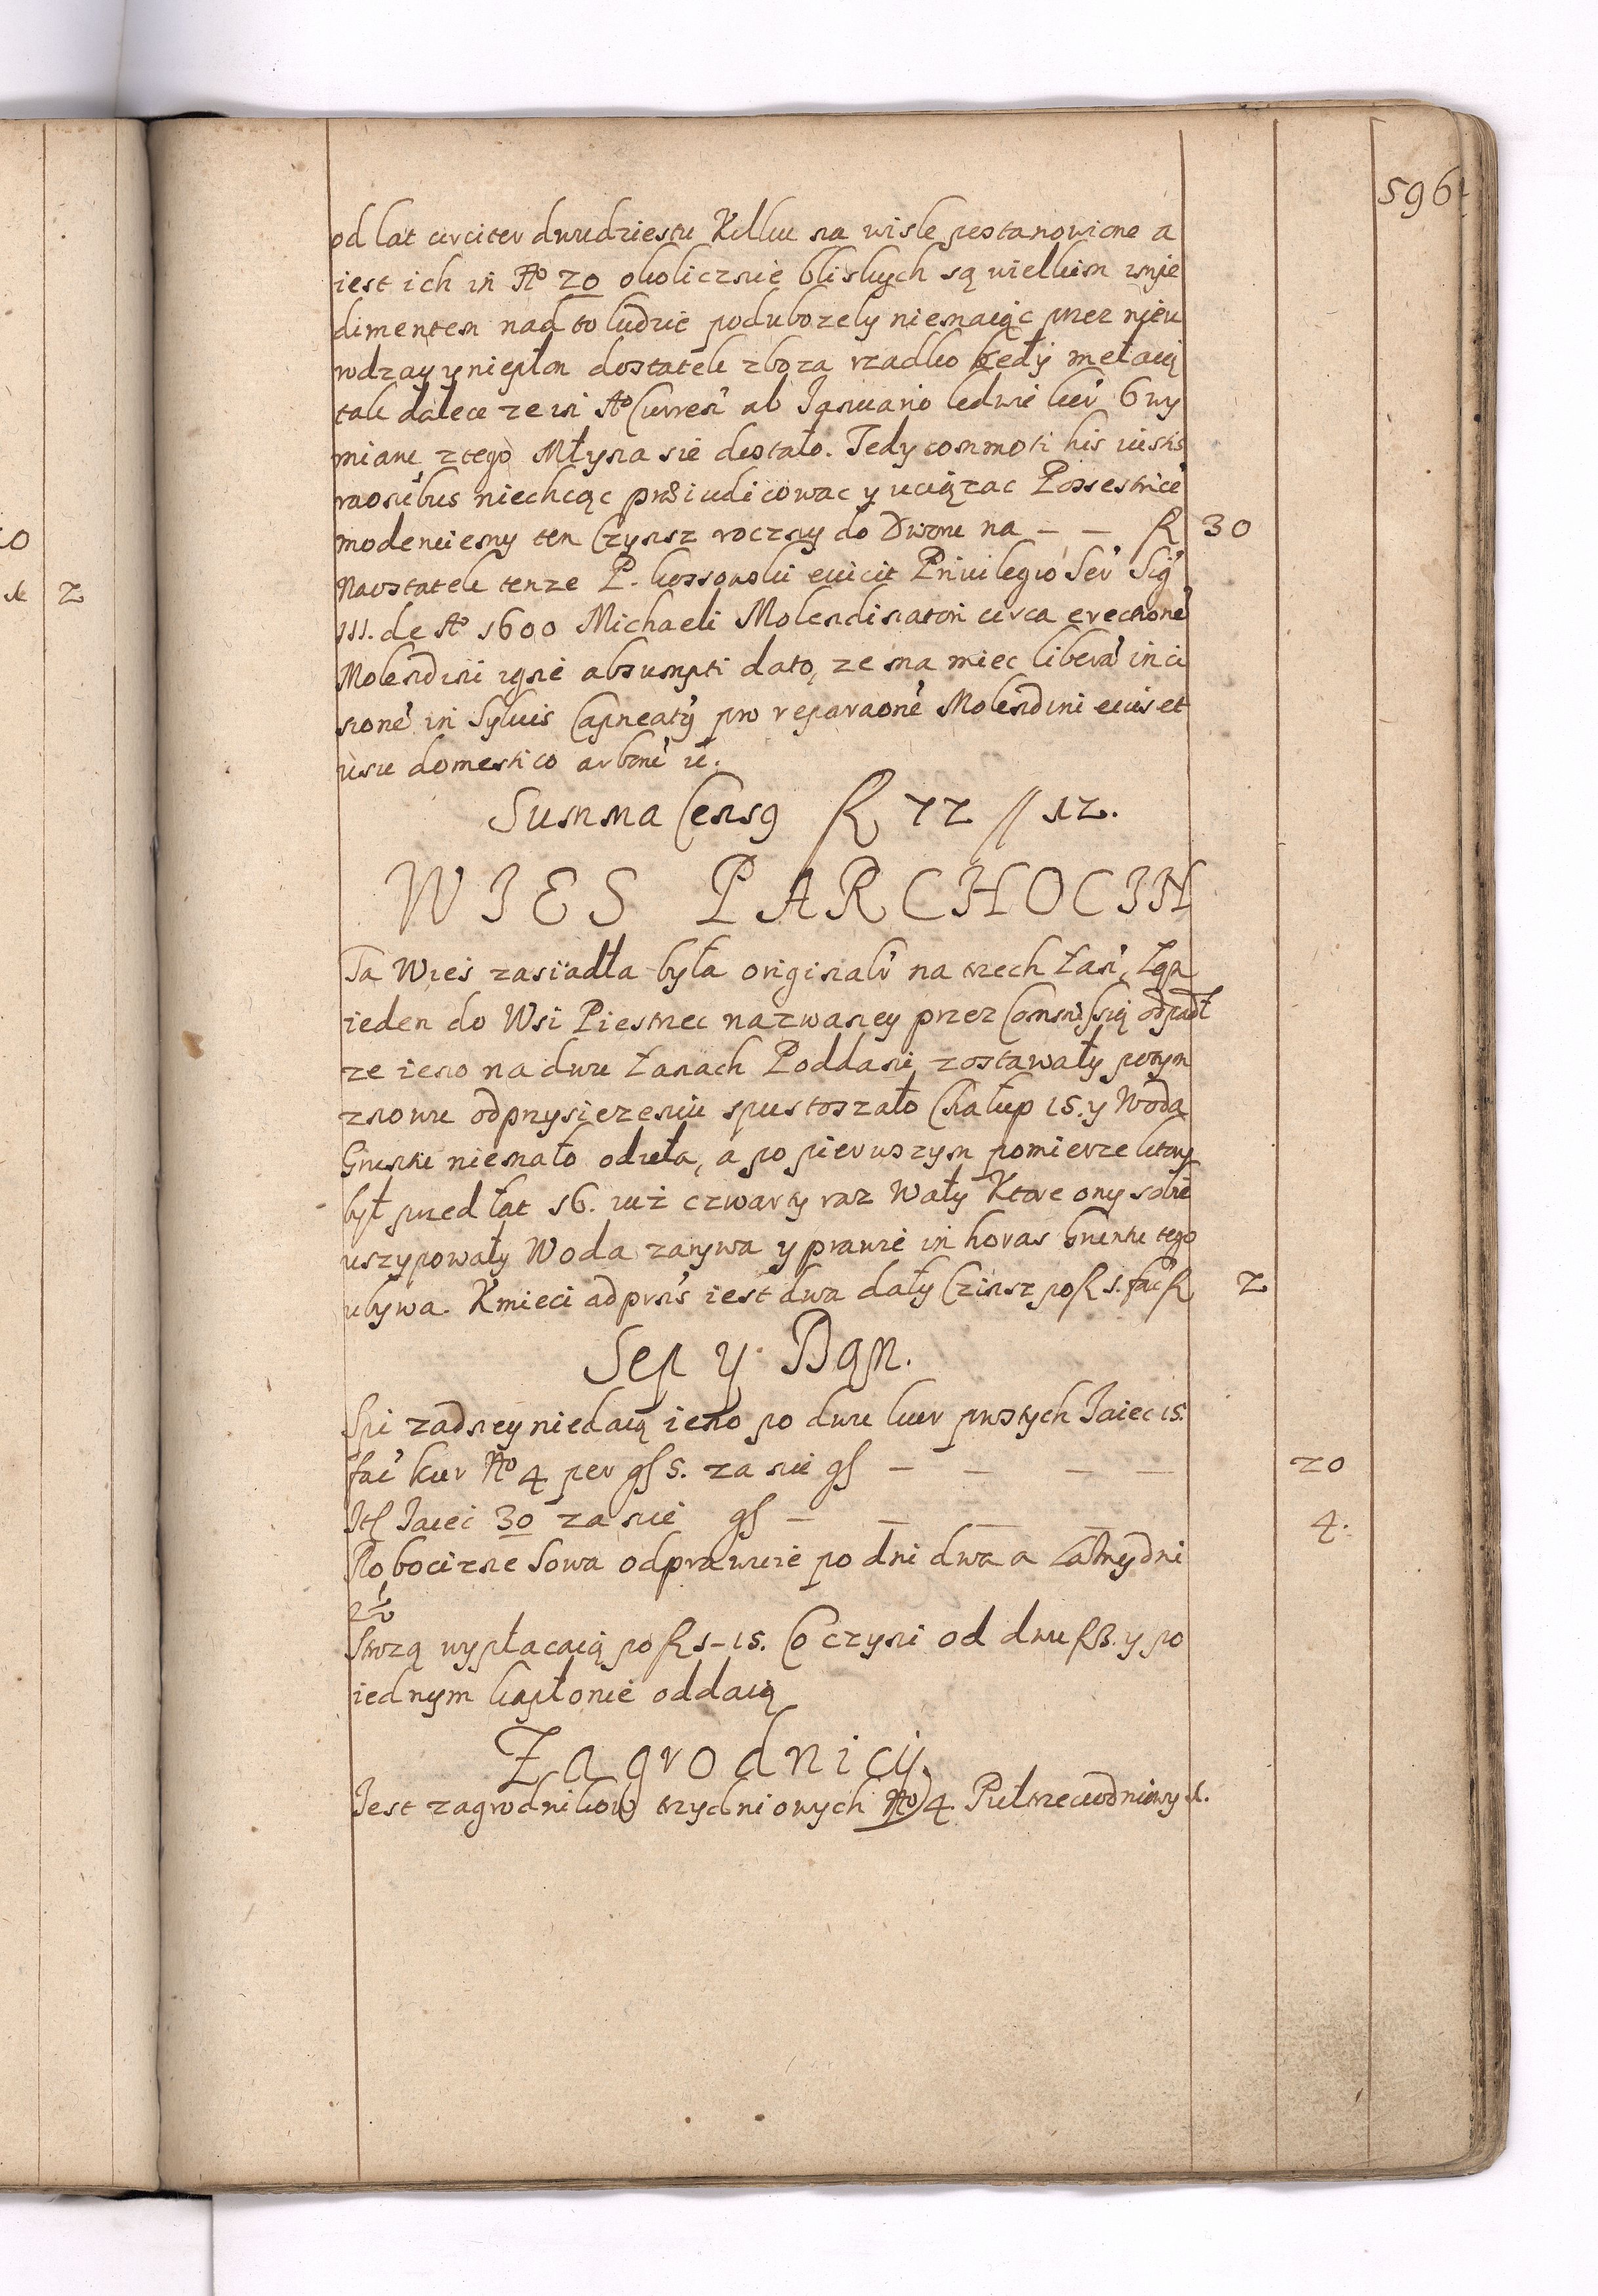 596
od lat circiter dwudziestu Kilku na wisle postanowione a
iest ich in No 20 okolicznie bliskych są wielkim impe
dimentem nad to ludzie podubozely niemaiąc przez nieu
rodzay y niepłon dostatek zboza rzadko kedy mełaią
tak dalece ze in Ao Curren ab Ianuario ledwie kor 6 wy
miaru z tego Młyna sie dostało. Tedy commoti his iustis
raonibus niechcąc preiudicowac y uciązac Possestrice
moderuiemy ten Czynsz roczny do Dworu na — — R 30
Naostatek tenze P. kossowski euicit Priuilegio Ser Sig
III. de Ao 1600 Michaeli Molendinatori circa erectione
Molendini igne absumpti dato, ze ma miec libera inci
sione in Syluis Capneaty pro reparaone Molendini eius et
usu domestico
Summa Censq R 72 // 12.
WIES PARCHOCIN
Ta Wieś zasiadła była originalr na trzech Łan, Zqn
ieden do Wsi Piestrzec nazwaney przez Commissią odpadł
ze ieno na dwu Łanach Poddani zostawały potym
znowu odprzysięzeniu spustoszało Chałup 15. y Woda
Gruntu niemało odieła, a po pierwszym pomierze ktory
był przed lat 16. iuż czwarty raz Wały Ktore ony sobie
uszypowały Woda zarywa y prawie in horas Gruntu tego
ubywa. Kmieci ad prns iest dwa dały Czinsz po R 1. fac R 2
Sep y Dan.
Spi zadney niedaią ieno po dwu kur prostych Iaiec 15.
fac kur No 4 per gs 5. za nie gs — — — — 20
Itl Iaiec 30 za nie gs — — — — 4.
Robocizne Sowa odprawuie po dni dwa a Latny dni
2½
Strozą wypłacaią po R 1-15. Co czyni od dwu R 3. y po
iednym kapłonie oddaią
Zagrodnicy.
Iest zagrodnikow trzydniowych No 4. Pułtrzeciodniowych.